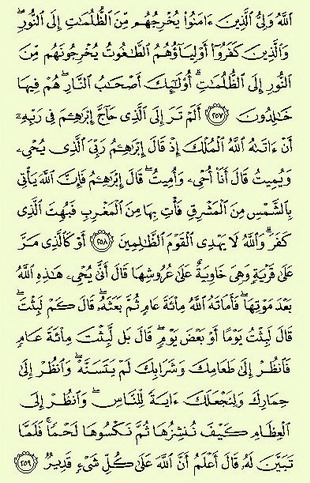 ٱللَّهُ وَلِىُّ ٱلَّذِينَ ءَامَنُوا۟ يُخْرِجُهُم مِّنَ ٱلظُّلُمَٰتِ إِلَى ٱلنُّورِ ۖ
وَٱلَّذِينَ كَفَرُوٓا۟ أَوْلِيَآؤُهُمُ ٱلطَّٰغُوتُ يُخْرِجُونَهُم مِّنَ
ٱلنُّورِ إِلَى ٱلظُّلُمَٰتِ ۗ أُو۟لَٰٓئِكَ أَصْحَٰبُ ٱلنَّارِ ۖ هُمْ فِيهَا
خَٰلِدُونَ ٢٥٧ أَلَمْ تَرَ إِلَى ٱلَّذِى حَآجَّ إِبْرَٰهِۦمَ فِى رَبِّهِۦٓ
أَنْ ءَاتَىٰهُ ٱللَّهُ ٱلْمُلْكَ إِذْ قَالَ إِبْرَٰهِۦمُ رَبِّىَ ٱلَّذِى يُحْىِۦ
وَيُمِيتُ قَالَ أَنَا۠ أُحْىِۦ وَأُمِيتُ ۖ قَالَ إِبْرَٰهِۦمُ فَإِنَّ ٱللَّهَ يَأْتِى
بِٱلشَّمْسِ مِنَ ٱلْمَشْرِقِ فَأْتِ بِهَا مِنَ ٱلْمَغْرِبِ فَبُهِتَ ٱلَّذِى
كَفَرَ ۗ وَٱللَّهُ لَا يَهْدِى ٱلْقَوْمَ ٱلظَّٰلِمِينَ ٢٥٨ أَوْ كَٱلَّذِى مَرَّ
عَلَىٰ قَرْيَةٍ وَهِىَ خَاوِيَةٌ عَلَىٰ عُرُوشِهَا قَالَ أَنَّىٰ يُحْىِۦ هَٰذِهِ ٱللَّهُ
بَعْدَ مَوْتِهَا ۖ فَأَمَاتَهُ ٱللَّهُ مِا۟ئَةَ عَامٍ ثُمَّ بَعَثَهُۥ ۖ قَالَ كَمْ لَبِثْتَ ۖ
قَالَ لَبِثْتُ يَوْمًا أَوْ بَعْضَ يَوْمٍ ۖ قَالَ بَل لَّبِثْتَ مِا۟ئَةَ عَامٍ
فَٱنظُرْ إِلَىٰ طَعَامِكَ وَشَرَابِكَ لَمْ يَتَسَنَّهْ ۖ وَٱنظُرْ إِلَىٰ
حِمَارِكَ وَلِنَجْعَلَكَ ءَايَةً لِّلنَّاسِ ۖ وَٱنظُرْ إِلَى
ٱلْعِظَامِ كَيْفَ نُنشِزُهَا ثُمَّ نَكْسُوهَا لَحْمًا ۚ فَلَمَّا
تَبَيَّنَ لَهُۥ قَالَ أَعْلَمُ أَنَّ ٱللَّهَ عَلَىٰ كُلِّ شَىْءٍ قَدِيرٌ ٢٥٩